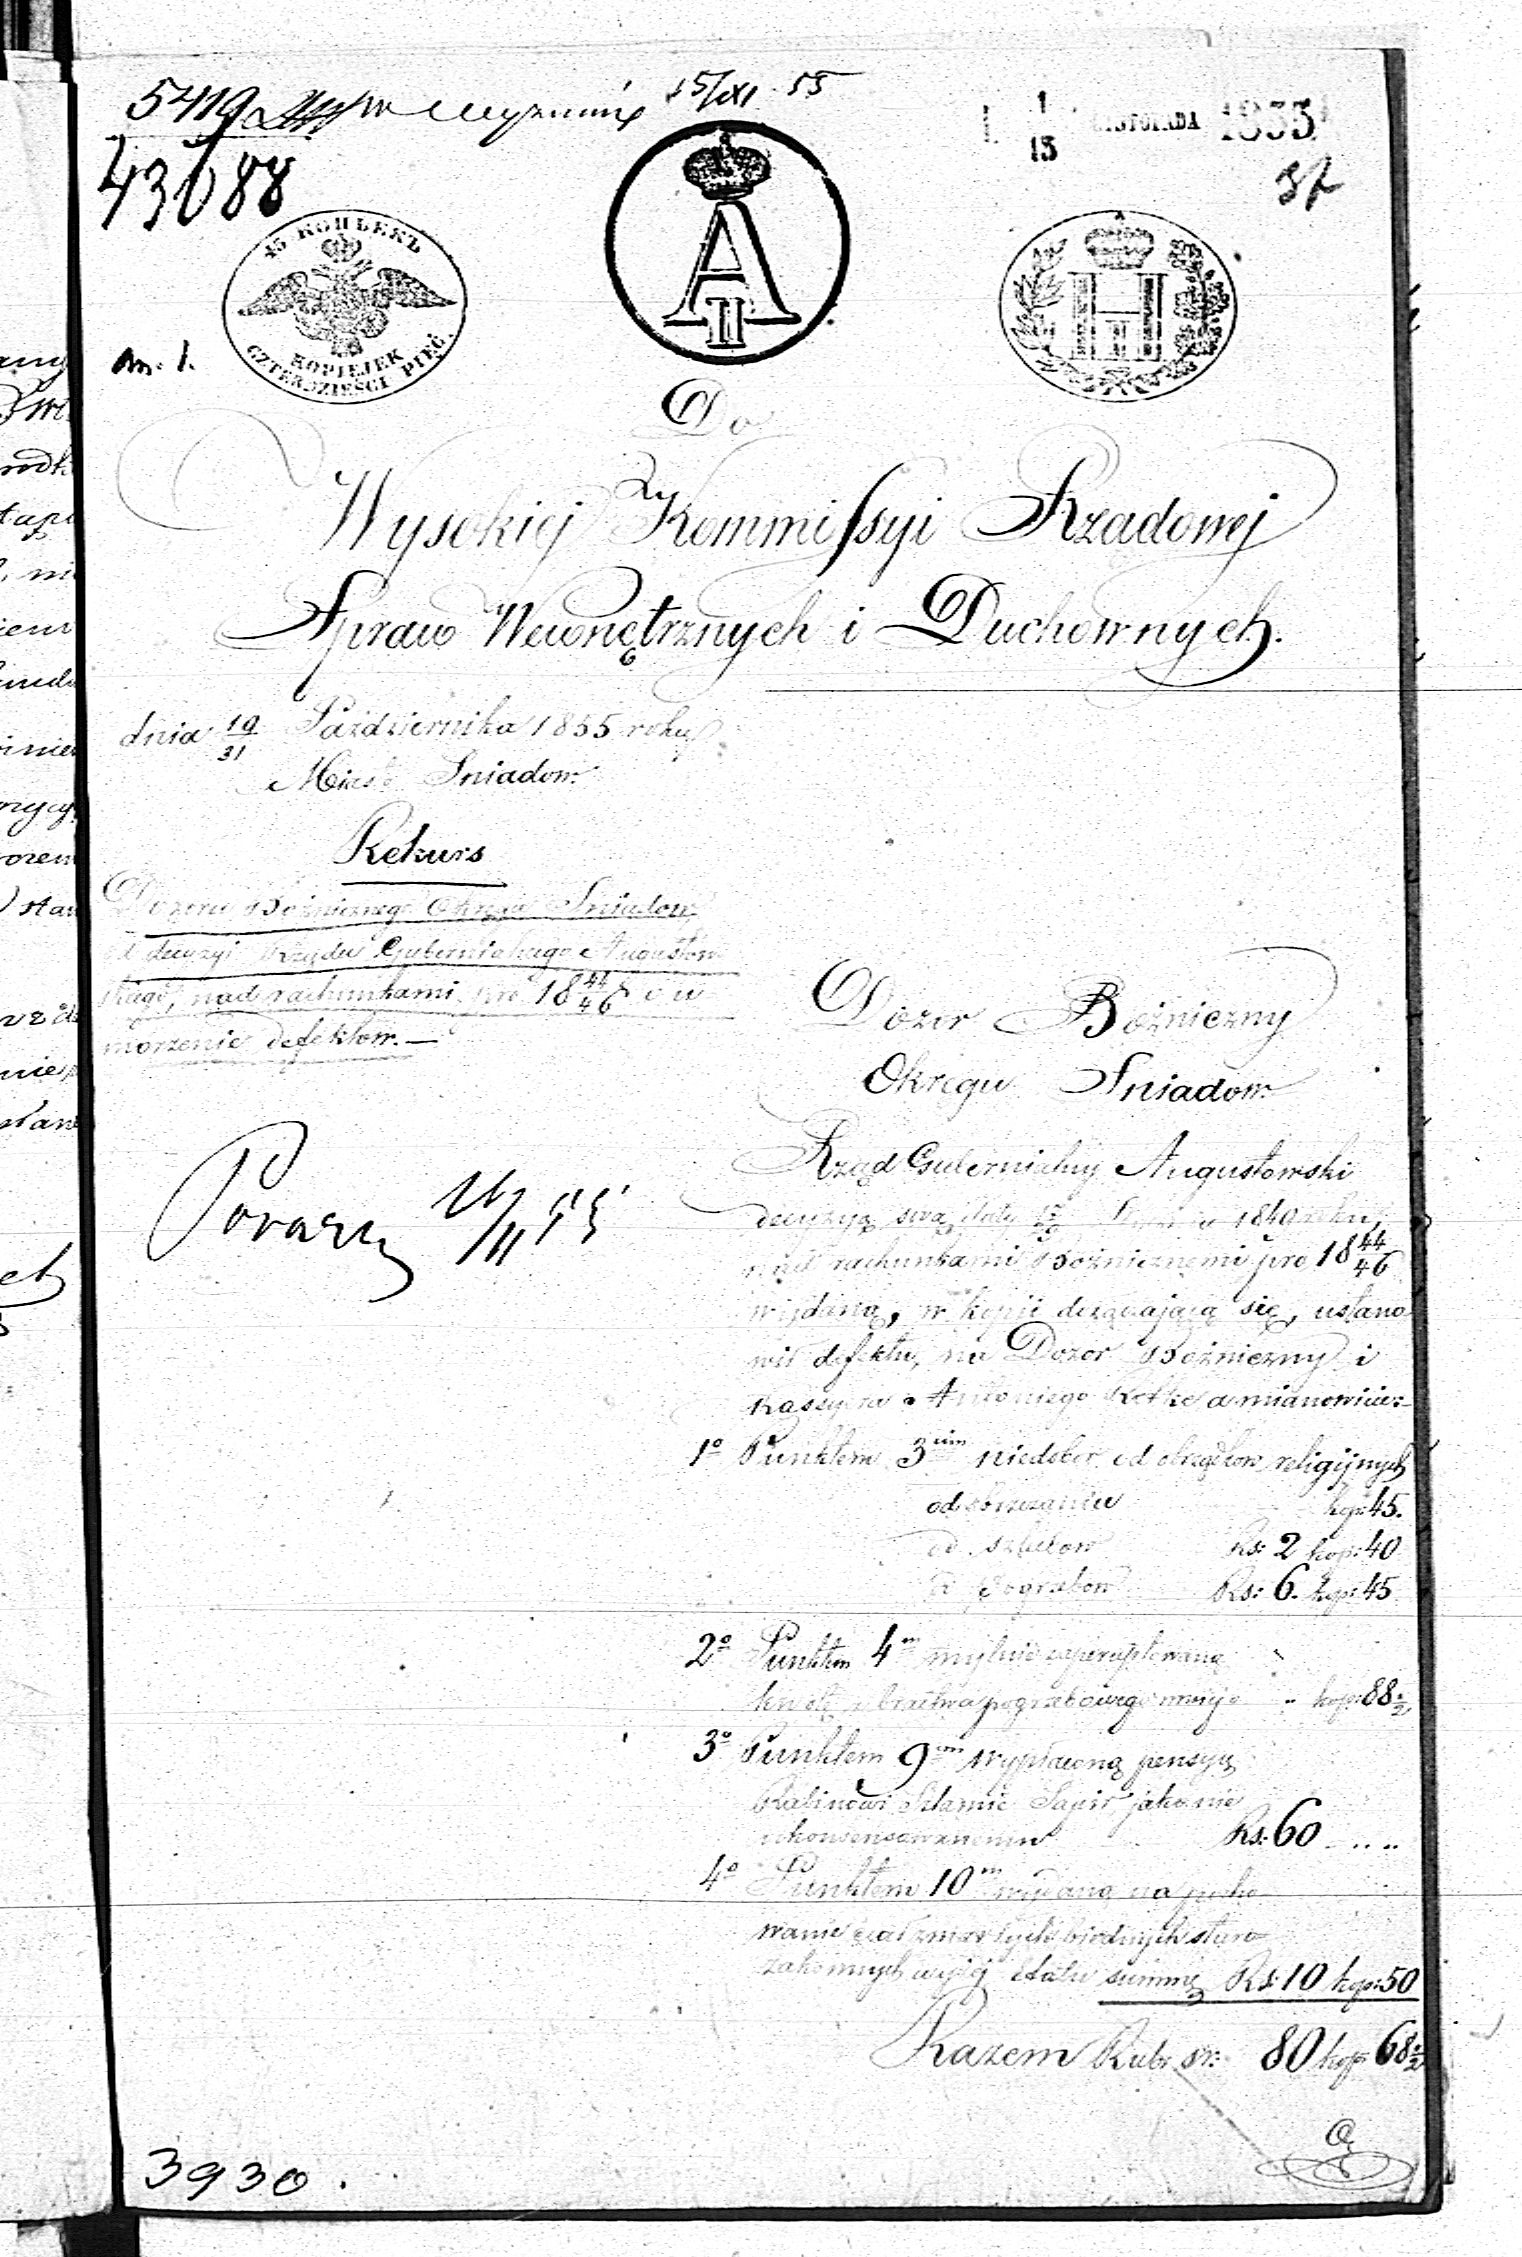 5419
15/XI 55
1
13
LISTOPADA 1855
43688
37
45 КОПѢЕКЪ
KOPIEJEK
CZTERDZIEŚCI PIĘĆ
A
II
H I
Do
Wysokiej Kommissyi Rządowej
Spraw Wewnętrznych i Duchownych.
dnia 19/31 Października 1855 roku
Miasto Sniadow.
Rekurs
Dozoru Bożnicznego Okręgu Sniadow
od decyzyi Rządu Gubernialnego Augustow
skiego, nad rachunkami pro 18 44/46 o u
morzenie defektow. —
Dozor Bożniczny
Okręgu Sniadow.
Rząd Gubernialny Augustowski
decyzyą swą daty 1849 roku,
nad rachunkami Bożnicznemi pro 18 44/46
wydaną, w kopii dołączającą się, ustano
wił defekta, na Dozor Bożniczny i
Kassyera Antoniego Kotke a mianowicie:
1º Punktem 3cim niedobor od obrządkow religijnych
od obrzezaniu kop: 45.
od szlubow Rs: 2 kop: 40
od pogrzebow Rs: 6. kop: 45
2º Punktem 4m mylnie
kwotę bractwa pogrzebowego mniej kop: 88½
3º Punktem 9m wypłaconą pensyą
Rabinowi Szlamie Sapir jako nie
ukonsensowanemu Rs: 60 ....
4º Punktem 10m wydaną na pocho
wanie ciał zmarłych biednych staro
zakonnych wyżej etatu summę Rs: 10 kop: 50
Razem Rubr. sr: 80 kop: 68½
3930.